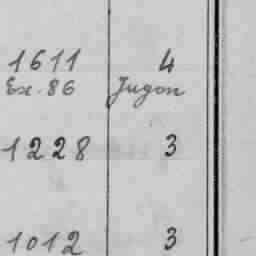 1611 4
Ex. 86 Jugon
1228 3
1012 3